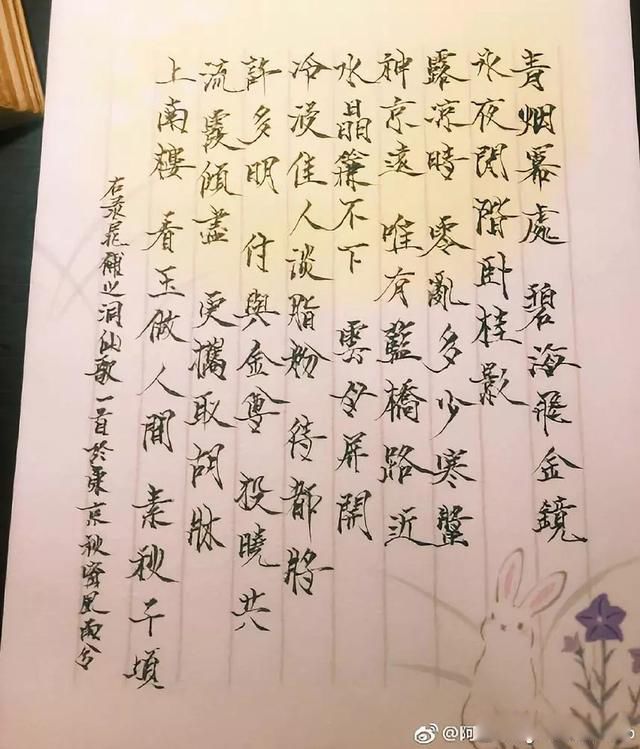 青烟幂處 碧海飛金鏡
永夜閒階卧桂影
露凉時 零亂多少寒螿
神京遠 唯有藍橋路近
水晶簾不下 雲母屏開
冷浸佳人談脂粉 待都將
許多明 付與金尊 投曉共
流霞傾盡 更攜取胡牀
上南樓 看玉做人間 素秋千頃
右录晁補之洞仙歌一首於東京秋窗風雨夕
@阿